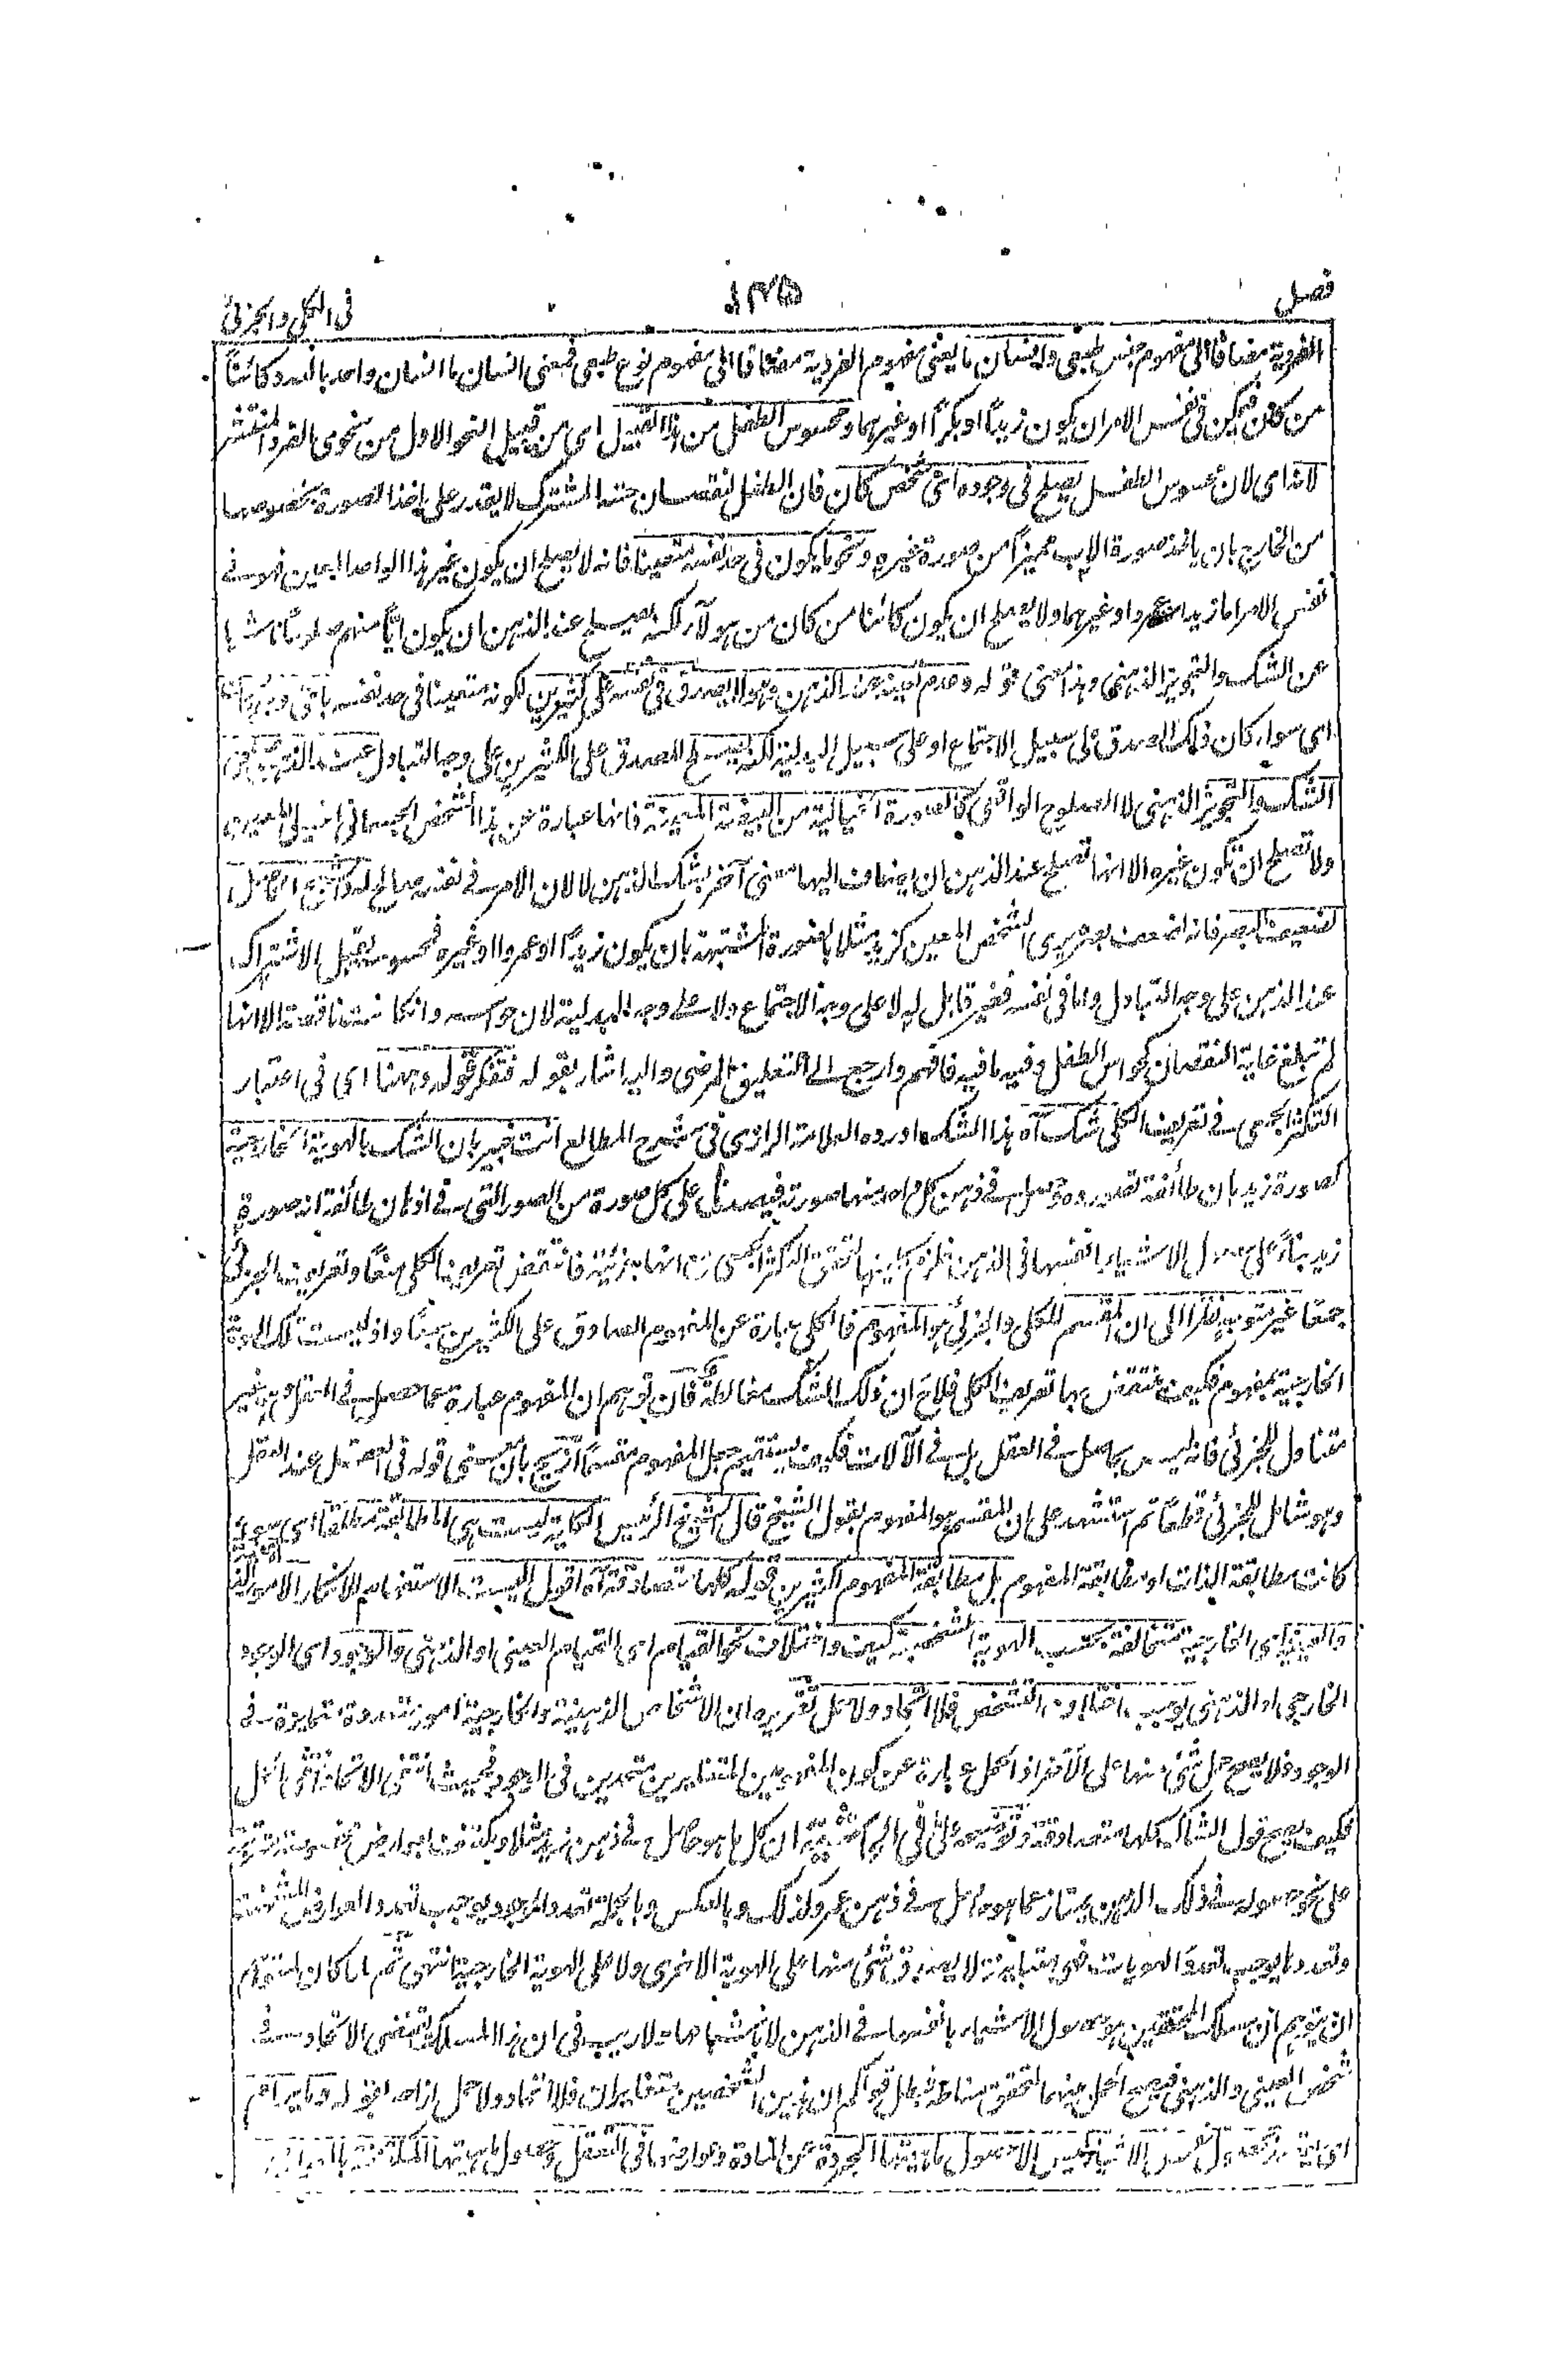 فصل
١٣٥
فى الكلى والجزئى
الفردية مضافا الى مفهوم جنس طبعى وانسان ما يعنى مفهوم الفردية مضافا الى مفهوم نوع طبعى فمعنى انسان ما انسان واحد بالعدد كائنًا
من كان فيمكن فى نفس الامر ان يكون زيدًا او بكرًا او غيرهما ومحسوس الطفل من هذا القبيل اى من قبيل النحو الاول من نحوى الفرد المنتشر
لانه اى لان محسوس الطفل يصلح فى وجوده اى شخص كان فان الطفل لنقصان حسه المشترك لا يقدر على اخذ الصورة بخصوصها
من الخارج بان ياخذ صورة الاب مميزًا من صورة غيره ونحو ما يكون فى حد نفسه متعينا فانه لا يصلح ان يكون غير هذا الواحد المعين فهو فى
نفس الامر اما زيد او عمرو او غيرهما ولا يصلح ان يكون كائنا من كان من هولآء لكنه يصلح عند الذهن ان يكون ايًّا منهم صلوحًا ناشيا
عن الشك والتجويز الذهنى وهذا معنى قوله وعدم تعينه عند الذهن وهو لا يصدق فى نفسه على كثيرين لكونه متعينا فى حد نفسه
اى سواء كان ذلك الصدق على سبيل الاجتماع او على سبيل البدلية لكنه يصلح للصدق على الكثيرين على وجه التبادل عند الذهن
الشك والتجويز الذهنى لا الصلوح الواقعى كالصورة الخيالية من البيضة المعينة فانها عبارة عن هذا الشخص الجسمانى الخيالى المعين
ولا تصلح ان تكون غيره الا انها تصلح عند الذهن ان يضاف اليها معنى آخر بشك الذهن لا لان الامر فى نفسه صالح له
لضعيف البصر فانه لضعف بصره يرى الشخص المعين كزيد مثلا بالصورة المشتبهة بان يكون زيدًا او عمروا او غيره فمحسوسه يقبل الاشتراك
عند الذهن على وجه التبادل واما فى نفسه فغير قابل له لا على وجه الاجتماع ولا على وجه البدلية لان حواسه وان كانت ناقصة الا انها
لم تبلغ غاية النقصان كحواس الطفل وفيه ما فيه فافهم وارجع الى التعليق المرضى واليه اشار بقوله فتفكر قوله وههنا اى فى اعتبار
التكثر الجمعى فى تعريف الكلى شك آه هذا الشك اورده العلامة الرازى فى شرح المطالع انت خبير بان الشك بالهوية الخارجية
كصورة زيد بان طائفة تصوروه وحصل فى ذهن كل واحد منها صورته فيصدق على كل صورة من الصور التى فى اذهان طائفة انه صورة
زيد بناءً على حصول الاشياء بانفسها فى الذهن فلزم كليتها لتحقق التكثر الجمعى مع انها جزئية فانتقض تعريف الكلى منعًا وتعريف الجزئى
جمعًا غير متوجه نظرًا الى ان المقسم للكلى والجزئى هو المفهوم فالكلى عبارة عن المفهوم الصادق على الكثيرين جمعًا واذ ليست تلك الهوية
الخارجية بمفهوم فكيف ينتقض بها تعريف الكلى فلاح ان ذلك الشك مغالطة فان توهم ان المفهوم عبارة عما حصل فى العقل وهو غير
متناول للجزئى فانه ليس بحاصل فى العقل بل فى الآلات فكيف يستقيم جعل المفهوم مقسمًا ازيح بان معنى قوله فى العقل عند العقل
وهو شامل للجزئى قطعًا ثم استشهد على ان المقسم هو المفهوم بقول الشيخ قال الشيخ الرئيس الكلية ليست هى المطابقة مطلقًا اى سواء
كانت مطابقة الذات او مطابقة المفهوم بل مطابقة المفهوم الكثيرين قوله كلها متصادقة آه اقول ليست الاستفهام للانكار الامور الذهنية
والعينية اى الخارجية متخالفة بحسب الهوية الشخصية كيف واختلاف نحو القيام اى القيام العينى او الذهنى والوجود اى الوجود
الخارجى او الذهنى يوجب اختلاف التشخص فلا اتحاد ولا حمل تقريره ان الاشخاص الذهنية والخارجية امور متعددة متمايزة فى
الوجود فلا يصح حمل شئ منها على الآخر اذ الحمل عبارة عن كون المفهومين المتغايرين متحدين فى الوجود فحيث انتفى الاتحاد انتفى الحمل
فكيف يصح قول الشاك كلها متصادقة وتوضيحه على ما فى الحاشية ان كل ما هو حاصل فى ذهن زيد مثلا ومكتنف بعوارض
على نحو حصوله فى ذلك الذهن يمتاز عما هو حاصل فى ذهن عمرو كذلك وبالعكس وبالجملة تعدد الوجود يوجب تعدد العوارض المشخصة
وتعددها يوجب تعدد الهويات فهى متباينة لا يصدق شئ منها على الهوية الاخرى ولا على الهوية الخارجية انتهى ثم لما كان لمتوهم
ان يتوهم ان مسلك المحققين هو حصول الاشياء بانفسها فى الذهن لا باشباحها ولا ريب فى ان هذا المسلك يقتضى الاتحاد فى
شخص العينى والذهنى فيصح الحمل بينهما لتحقق مناطه فبطل قولكم ان هذين الشخصين متغايران فلا اتحاد ولا حمل ازاحه بقوله وما يرآءى
حصول نفس الاشياء ليس الا حصول ماهيتها المجردة عن المادة وعوارضها فى التعقل وحصول ماهيتها المكتنفة